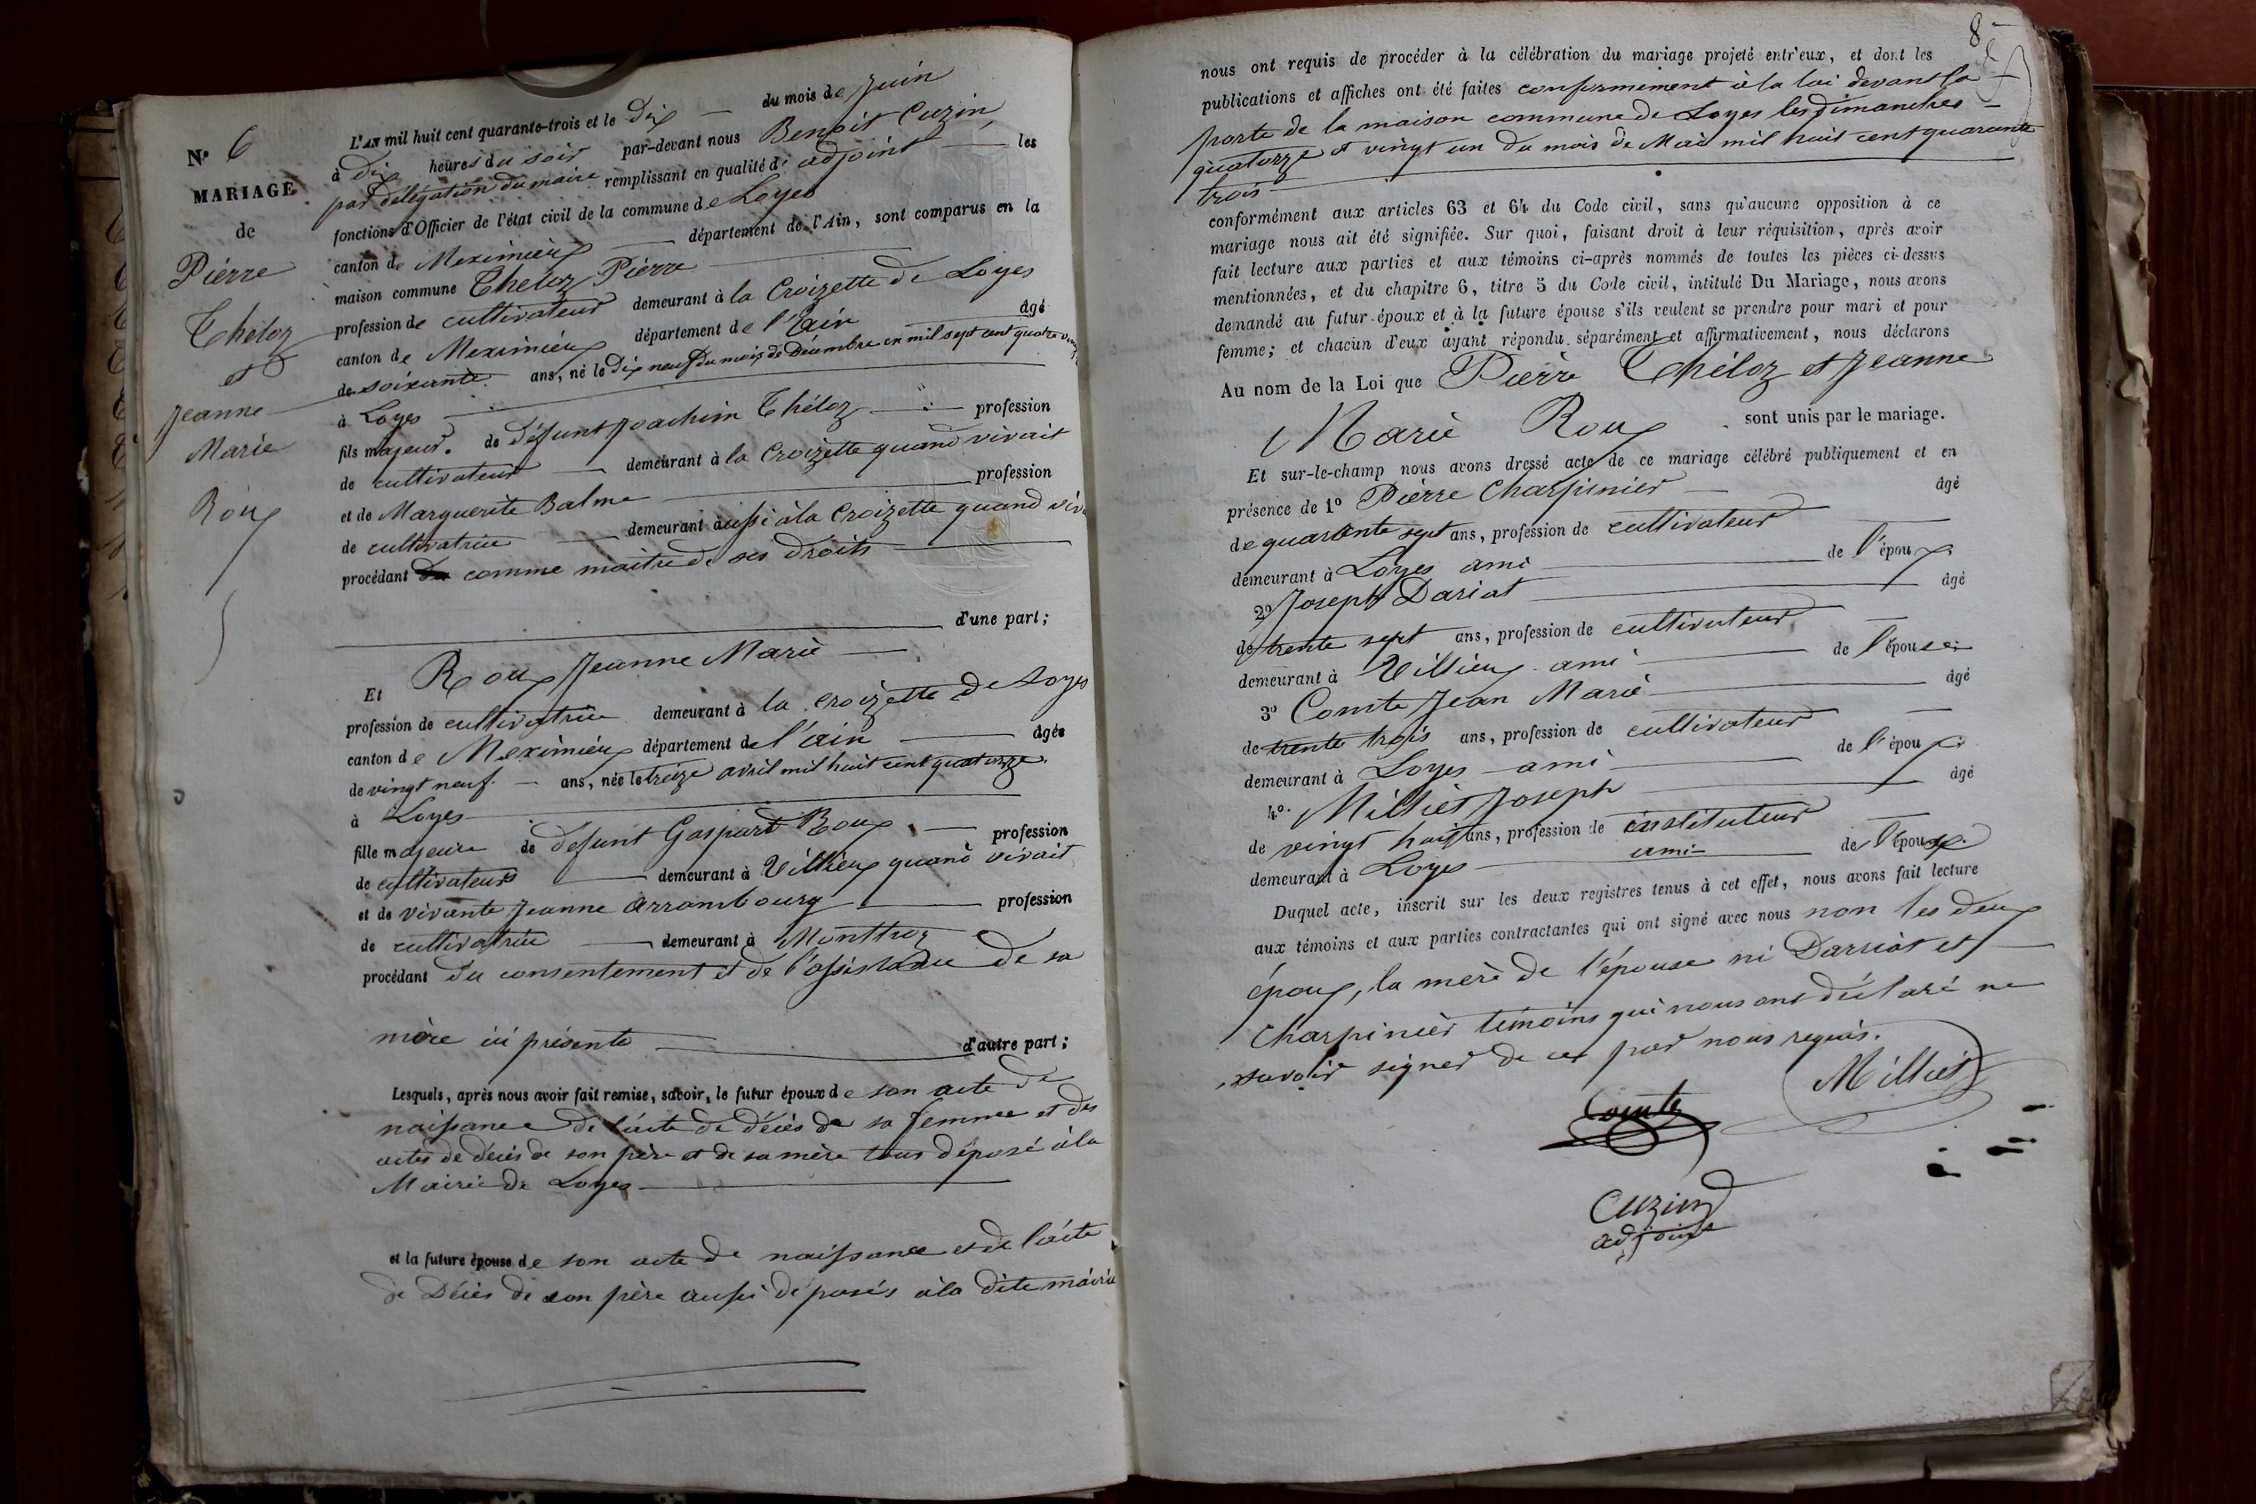 N° 6
MARIAGE
de
Pierre
Théloz
et
Jeanne
Marie
Roux
L'AN mil huit cent quarante-trois et le dix du mois de Juin
à dix heures du soir par-devant nous Benoit Cuzin,
par délégation du maire remplissant en qualité d'adjoint les
fonctions d'Officier de l'état civil de la commune de Loyes
canton de Meximieux département de l'Ain, sont comparus en la
maison commune Théloz Pierre
profession de cultivateur demeurant à la Croizette de Loyes
canton de Meximieux département de l'Ain âgé
de soixante ans, né le dix neuf du mois de Décembre en mil sept cent quatre vingt
à Loyes
fils majeur de défunt Joachim Théloz profession
de cultivateur demeurant à la Croizette quand vivait
et de Marguerite Balme profession
de cultivatrice demeurant aussi à la Croizette quand
procédant comme maitre de ses droits
d'une part;
Et Roux Jeanne Marie
profession de cultivatrice demeurant à la Croizette de Loyes
canton de Meximieux département de l'ain âgée
de vingt neuf ans, née le treize avril mil huit cent quatorze
à Loyes
fille majeure de défunt Gaspard Roux profession
de cultivateur demeurant à Villieux quand vivait
et de vivante Jeanne Arrambourg profession
de cultivatrice demeurant à Monttroz
procédant du consentement et de l'assistance de sa
mère ici présente d'autre part;
Lesquels, après nous avoir fait remise, savoir, le futur époux de son acte de
naissance de l'acte de décès de sa femme et des
actes de décès de son père et de sa mère tous déposé à la
Mairie de Loyes
et la future épouse de son acte de naissance et de l'acte
de Décès de son père aussi déposés à la dite mairie
8
nous ont requis de procéder à la célébration du mariage projeté entr'eux, et dont les
publications et affiches ont été faites conformément à la loi devant la
porte de la maison commune de Loyes les dimanches
quatorze et vingt un du mois de Mai mil huit cent quarante
trois
conformément aux articles 63 et 64 du Code civil, sans qu'aucune opposition à ce
mariage nous ait été signifiée. Sur quoi, faisant droit à leur réquisition, après avoir
fait lecture aux parties et aux témoins ci-après nommés de toutes les pièces ci-dessus
mentionnées, et du chapitre 6, titre 5 du Code civil, intitulé Du Mariage, nous avons
demandé au futur époux et à la future épouse s'ils veulent se prendre pour mari et pour
femme; et chacun d'eux ayant répondu séparément et affirmativement, nous déclarons
Au nom de la Loi que Pierre Théloz et Jeanne
Marie Roux sont unis par le mariage.
Et sur-le-champ nous avons dressé acte de ce mariage célébré publiquement et en
présence de 1° Pierre Charpinier âgé
de quarante sept ans, profession de cultivateur
demeurant à Loyes ami de l'époux
2° Joseph Dariat âgé
de trente sept ans, profession de cultivateur
demeurant à Villieux ami de l'épouse
3° Comte Jean Marie âgé
de trente trois ans, profession de cultivateur
demeurant à Loyes ami de l'époux
4° Milliet Joseph âgé
de vingt huit ans, profession de instituteur
demeurant à Loyes ami de l'époux
Duquel acte, inscrit sur les deux registres tenus à cet effet, nous avons fait lecture
aux témoins et aux parties contractantes qui ont signé avec nous non les deux
époux, la mère de l'épouse ni Darriat et
Charpinier témoins qui nous ont déclaré ne
savoir signer de ce par nous requis.
Milliet
Comte
Cuzin
adjoint